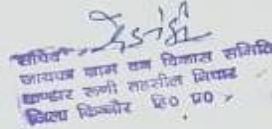 सचिव
जायका ग्राम वन विकास समिति
रूपी तहसील निचार
जिला किन्नौर हि0 प्र0